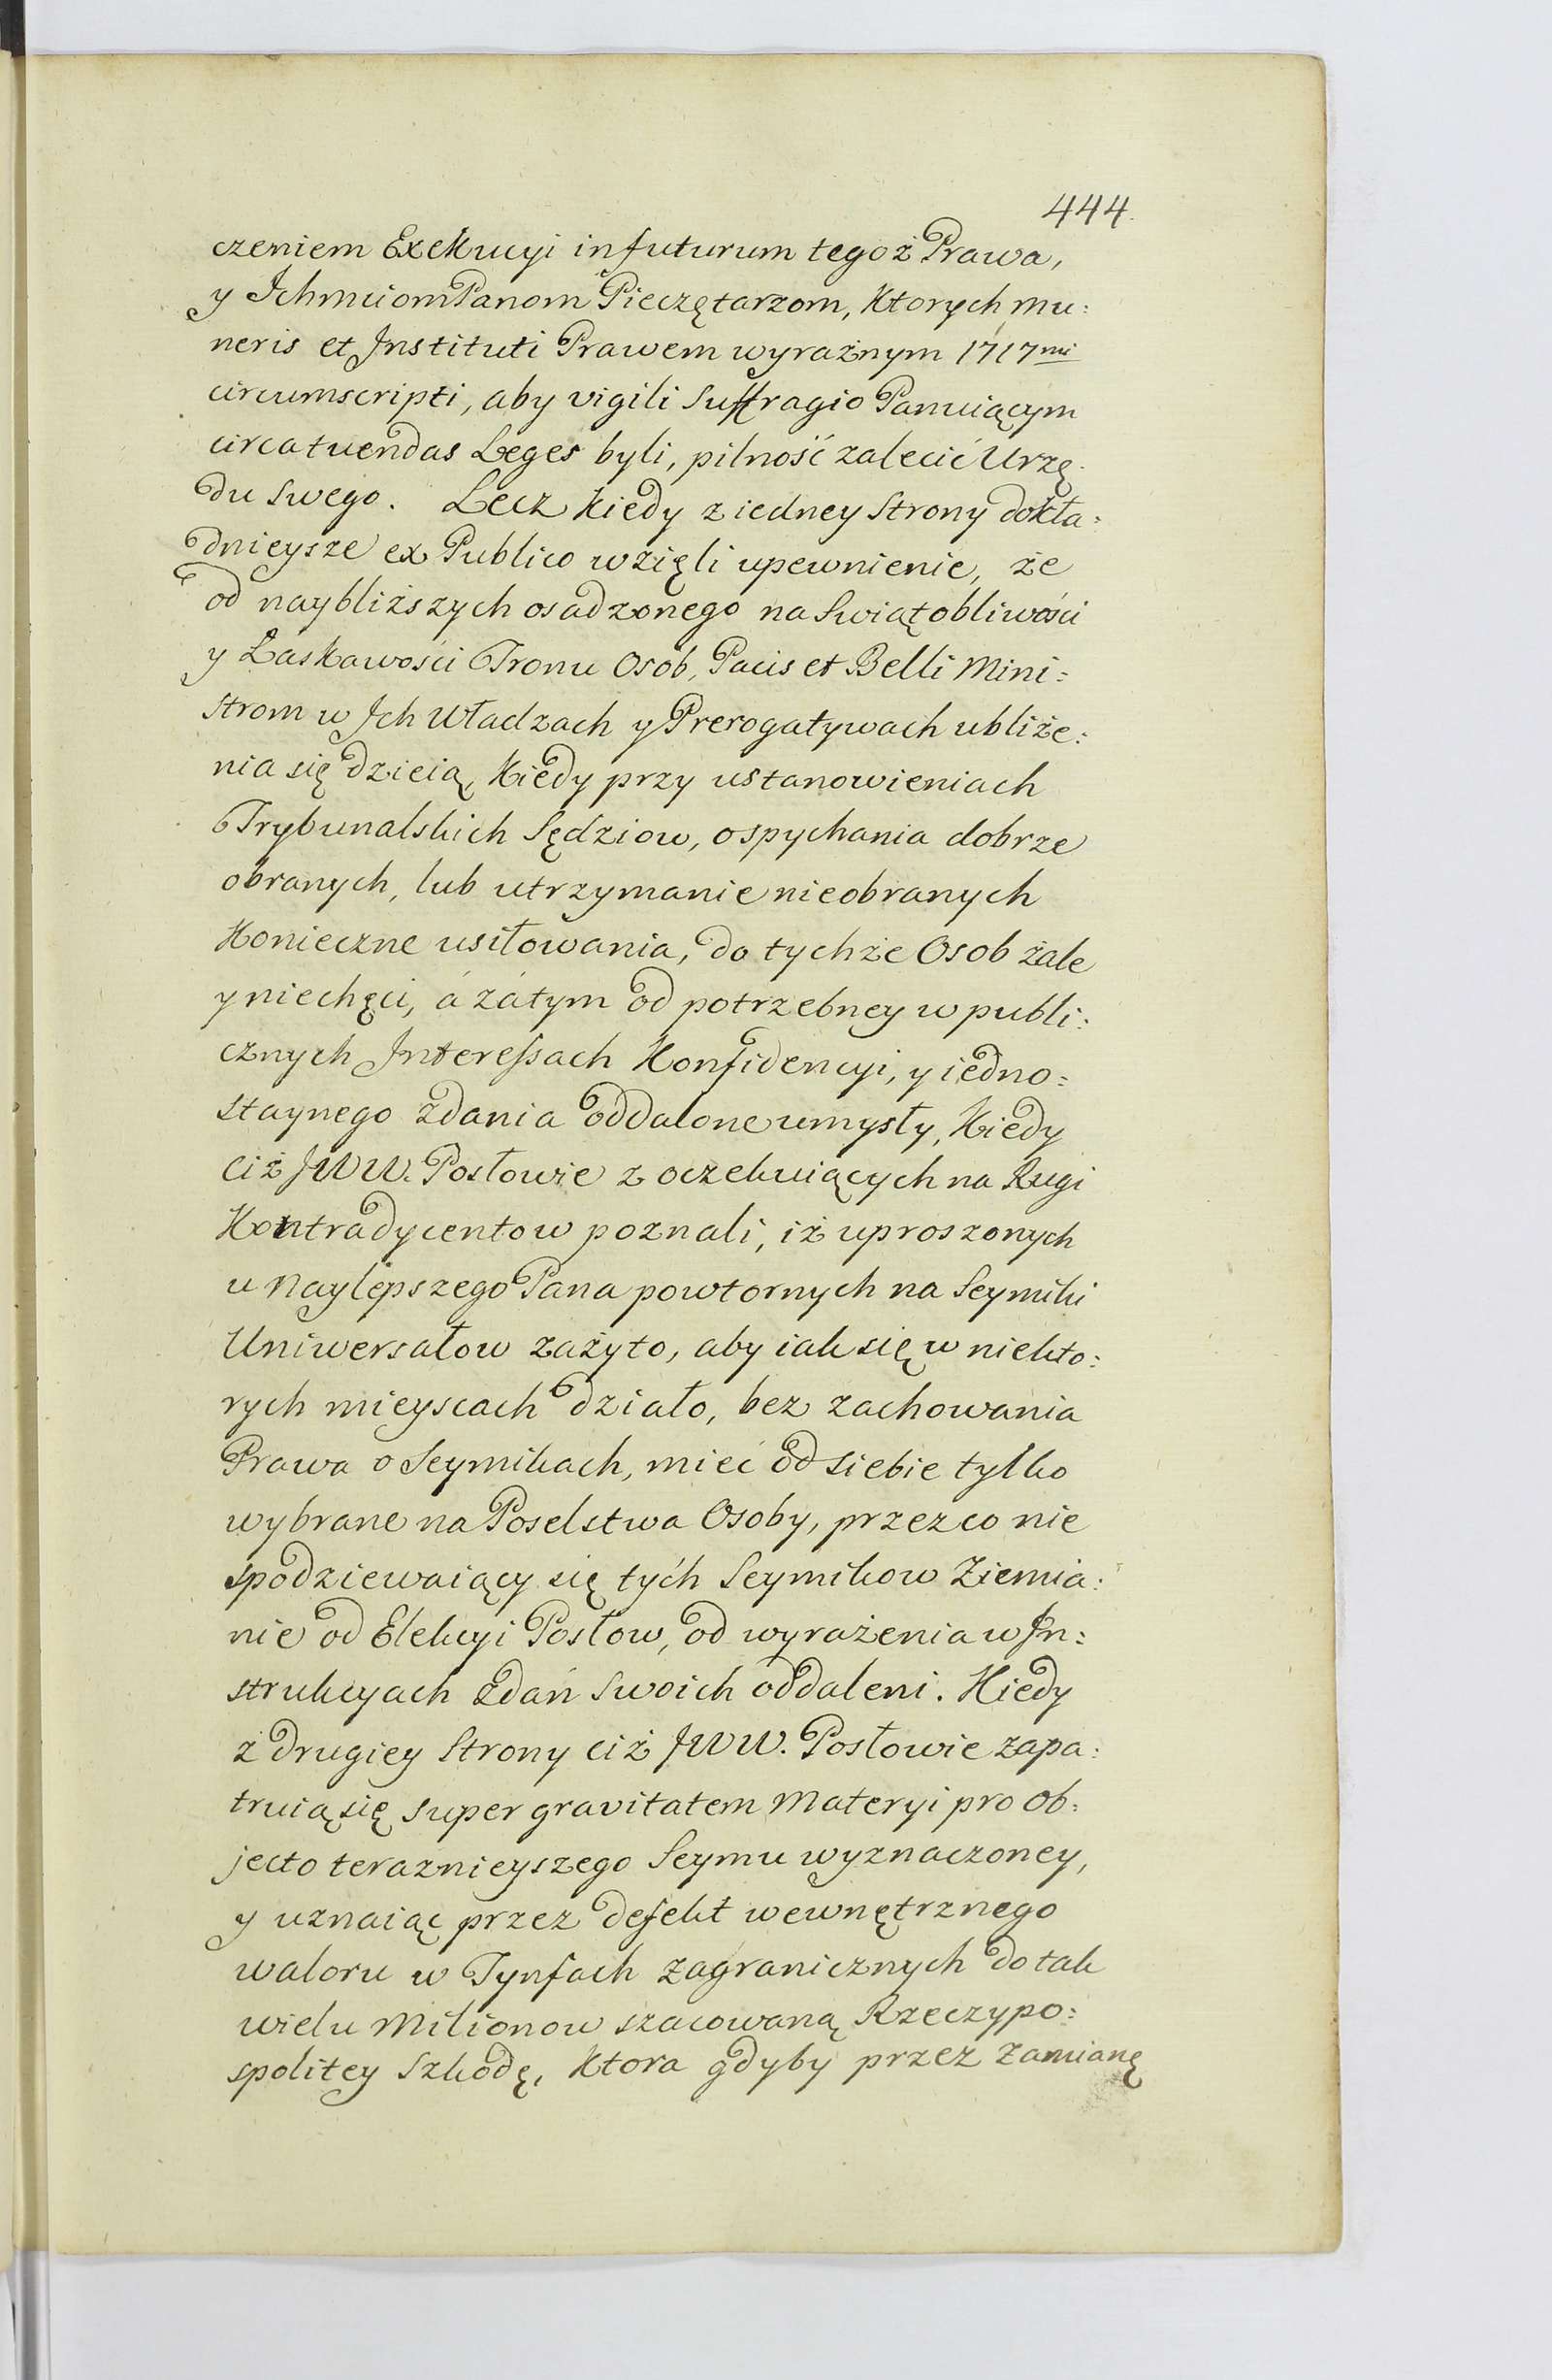 444.
czeniem Exekucyi in futurum tegoż Prawa,
y Ichmciom Panom Pieczętarzom, Ktorych mu:
neris et Instituti Prawem wyraźnym 1717mi
circumscripti, aby vigili Suffragio Panuiącym
circa tuendas Leges byli, pilność zalecić Urzę:
du Swego. Lecz Kiedy z iedney Strony dokła:
dnieysze ex Publico wzięli upewnienie, że
od naybliższych osadzonego na Swiątobliwości
y Łaskawości Tronu Osob, Pacis et Belli Mini:
strom w Ich Władzach y Prerogatywach ubliże:
nia się dzieią, Kiedy przy ustanowieniach
Trybunalskich Sędziow, o spychania dobrze
obranych, lub utrzymanie nieobranych
Konieczne usiłowania, do tychże Osob żale
y niechęci, á zátym od potrzebney w publi:
cznych Interessach Konfidencyi, y iedno:
staynego zdania oddalone umysły, Kiedy
ciż JWW. Posłowie z oczekuiących na Rugi
Kontradycentow poznali, iż uproszonych
u Naylepszego Pana powtornych na Seymiki
Uniwersałow zażyto, aby iak się w niekto:
rych mieyscach działo, bez zachowania
Prawa o Seymikach, mieć od siebie tylko
wybrane na Poselstwa Osoby, przez co nie
spodziewaiący się tych Seymikow Ziemia:
nie od Elekcyi Posłow, od wyrażenia w In:
strukcyach Zdań Swoich oddaleni. Kiedy
z drugiey Strony ciż JWW. Posłowie zapa:
truią się super gravitatem Materyi pro Ob:
jecto teraznieyszego Seymu wyznaczoney,
y uznaiąc przez defekt wewnętrznego
waloru w Tynfach zagranicznych do tak
wielu Milionow szacowaną Rzeczypo:
spolitey Szkodę, Ktora gdyby przez Zamianę